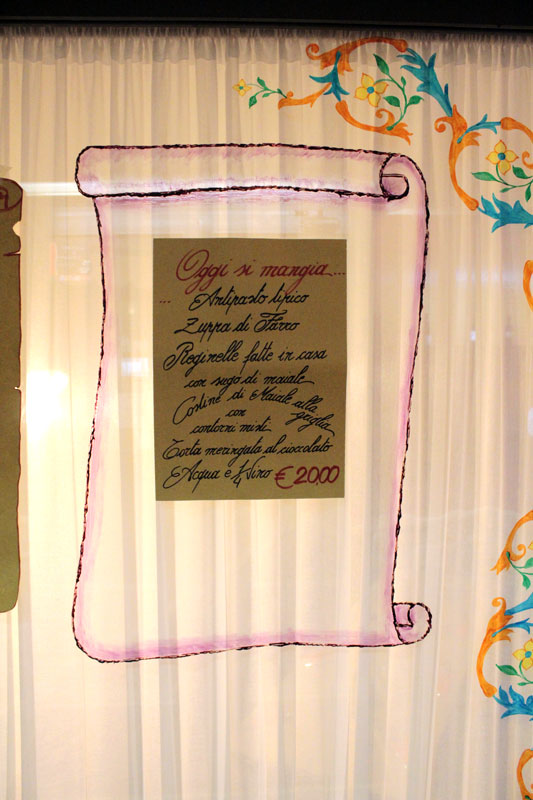 Oggi si mangia...
... Antipasto tipico
Zuppa di Farro
Reginelle fatte in casa
con sugo di maiale
Costine di Maiale alla griglia
con
contorni misti
Torta meringata al cioccolato
Acqua e ¼ Vino € 20,00